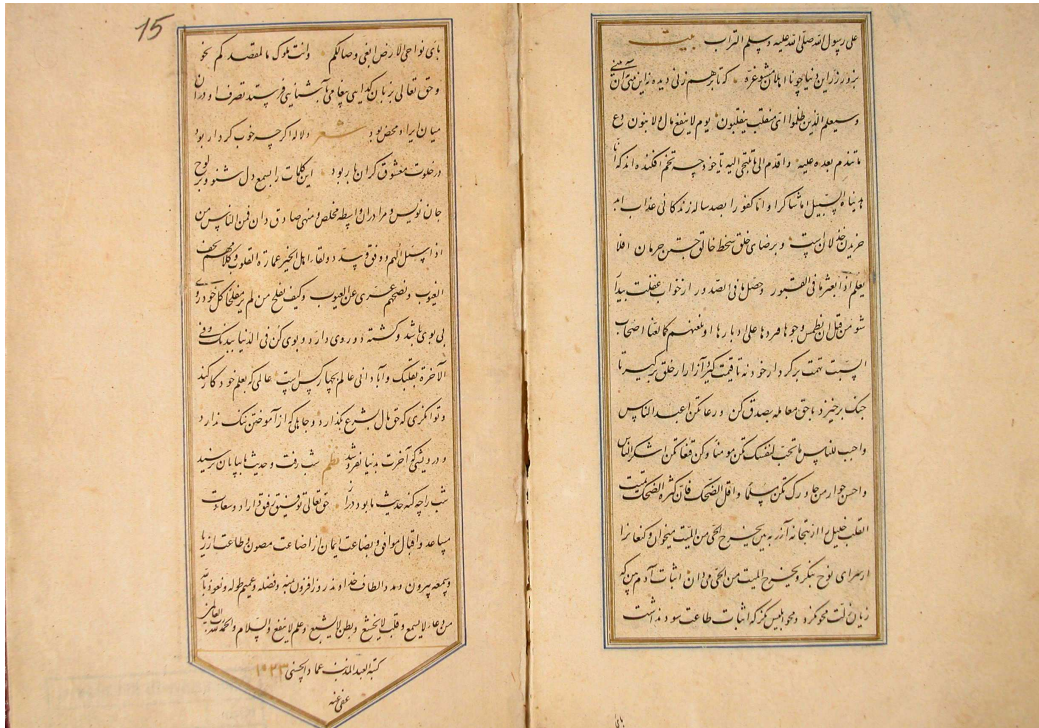 علی رسول الله صلی الله علیه وسلم التراب بیت
دنیا چو نا اهلان مشو غره که تا برهم زنی دیده نه این بینی نه آن بینی
وسیعلم الذین ظلموا ای منقلب ینقلبون یوم لا ینفع مال ولا بنون دع
ما تندم بعده علیه و اقدم الی ما تلتجی الیه تا خود چه تخم افکنده اند که انا
هدیناه السبیل اما شاکرا و اما کفورا بصد ساله زندگانی عذاب ابد
خریدن خذلان است و برضای خلق سخط خالق جستن حرمان افلا
یعلم اذا بعثر ما فی القبور وحصل ما فی الصدور از خواب غفلت بیدار
شو من قبل ان نطمس وجوها فنردها علی ادبارها او نلعنهم کما لعنا اصحاب
السبت تهمت بر کردار خود نه تا قیمت گیرد آزار از خلق برگیر تا
جنگ برخیزد با حق معامله بصدق کن ورعا تکن اعبد الناس
واحب للناس ما تحب لنفسک تکن مومنا وکن قنعا تکن اشکر الناس
واحسن جوار من جاورک تکن مسلما واقل الضحک فان کثرة الضحک تمیت
القلب خلیل را از بتخانه آزر به بین یخرج الحی من المیت میخوان و کنعان را
از سرای نوح بنگر و یخرج المیت من الحی می دان اثبات آدم بین که
زیان زلت محو نکرد و محو ابلیس نگر که اثبات طاعت سود نداشت
15
بای نواحی الارض ابغی وصالکم وانت ملوک ما لمقصدکم نحو
و حق تعالی بر زبان گدایی پیغامی بآشنایی فرستد تصرف او در آن
میان ایراد محض بود شعر دلاله اگر چه خوب کردار بود
در خلوت معشوق گران بار بود این کلمات را بسمع دل شنو و بر لوح
جان نویس و مرا در آن واسطه مخلص و منهی صادق دان فمن الناس من
اذا سئل الهم و وفق وسدد ولقاء اهل الخیر عمارة القلوب وکلامهم تحف
الغیوب ونصحهم عری عن العیوب وکیف یفلح من لم یر مفلحا گل خودروی
بی بوی باشد وکشته دو روی دارد و بوی کن فی الدنیا ببدنک وفی
الآخرة بقلبک و آبادانی عالم بچهار کس است عالمی که بعلم خود کار کند
و توانگری که حق مال بشرع بگذارد و جاهلی که از آموختن ننگ ندارد
و درویشی که آخرت بدنیا نفروشد نظم شب رفت و حدیث ما بپایان نرسید
شب را چه گنه حدیث ما بود دراز حق تعالی توفیق رفیق داراد و سعادت
مساعد و اقبال موافق و بضاعت ایمان از اضاعت مصون و طاعت از ریا
وسمعه بیرون و مدد الطاف خداوند روز افزون بمنه وفضله وعمیم طوله ونعوذ بالله
من دعاء لا یسمع وقلب لا یخشع وبطن لا یشبع وعلم لا ینفع والسلام والحمد لله رب العالمین
کتبه العبد المذنب عماد الحسنی ۱۰۲۳
عفی عنه